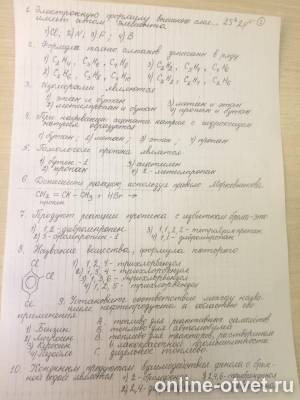 1. Электронную формулу внешнего слоя ...2S²2p⁵ ①
имеет атом элемента
1) Cl; 2) N; 3) F; 4) B
2. Формулы только алканов записаны в ряду
3. Изомерами являются
1) этан и бутан 3) метан и этан
2) метилпропан и бутан 4) пропан и бутан
4. При нагревании ацетата натрия с гидроксидом
натрия образуется
1) бутан; 2) метан; 3) этан; 4) пропан
5. Гомологом пропена является
1) бутен-1 3) ацетилен
2) пропан 4) 2-метилпропан
6. Допишите реакцию, используя правило Марковникова:
CH₂ = CH - CH₃ + HBr →
пропен
7. Продукт реакции пропена с избытком брома - это
1) 1,2-дибромпропен 3) 1,1,2,2-тетрабромпропан
2) 3-бромпропен-1 4) 1,1-дибромпропан
8. Название вещества, формула которого
Cl 1) 1,2,4-трихлорбензол
2) 1,3,4-трихлорбензол
3) 1,3,6-трихлорбензол
Cl 4) 1,2,5-трихлорбензол
Cl 9. Установите соответствие между назва-
нием нефтепродукта и областью его
применения
1) Бензин А. топливо для реактивных самолётов
2) Лигроин Б. топливо для автомобилей
3) Керосин В. топливо для тракторов, растворитель
в лакокрасочной промышленности
4) Газойль Г. дизельное топливо.
10. Конечным продуктом взаимодействия фенола с бром-
ной водой является 1) 2-бромфенол
online-otvet.ru